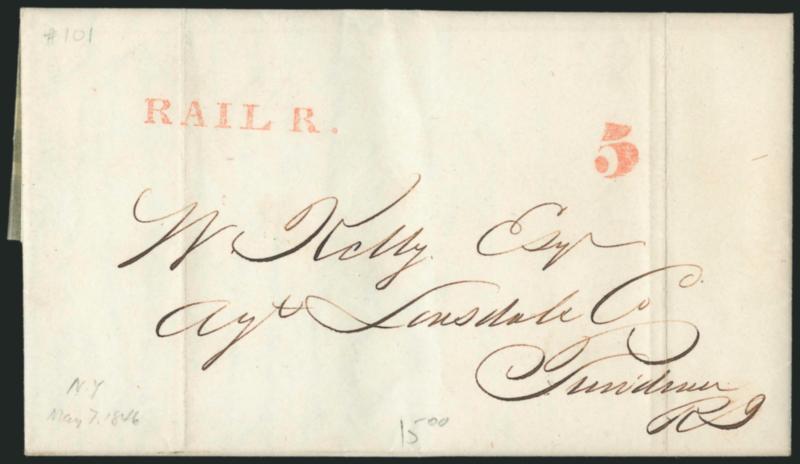 #101
RAIL R.
5
W. Kelly. Esqr
Agt Lonsdale Co.
Providence
RI
N.Y
May 7. 1846
15⁰⁰